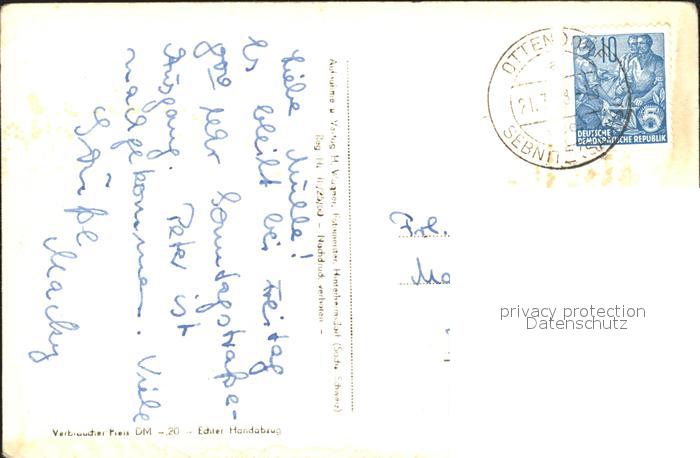 Liebe Mulle!
Es bleibt bei Freitag
9⁰⁰ Uhr Sonntagstraße-
Ausgang. Peter ist
nachgekommen. Viele
Grüße
Macky
Aufnahme u. Verlag M. Wagner, Hinterhermsdorf (Sächs. Schweiz)
Nachdruck verboten
Verbraucher Preis DM -.20 - Echter Handabzug
OTTENDORF
a
21.7.
SEBNITZ
10
DEUTSCHE
DEMOKRATISCHE REPUBLIK
Frl.
privacy protection
Datenschutz